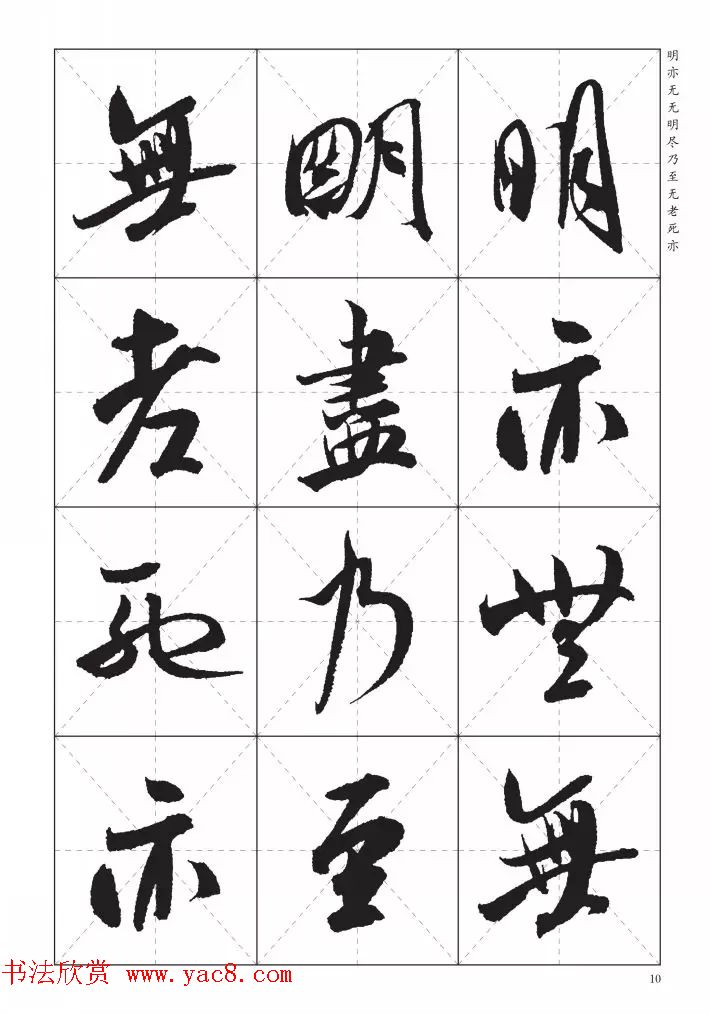 明亦无无明尽乃至无老死亦
明亦無無
明盡乃至
無老死亦
书法欣赏 www.yac8.com
10